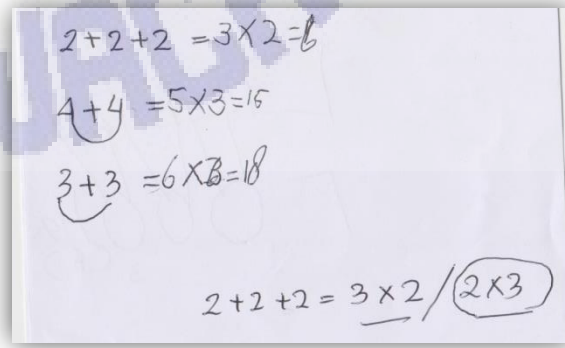 2+2+2 = 3×2=6
4+4 =5×3=15
3+3 =6×3=18
2+2+2 = 3×2/2×3